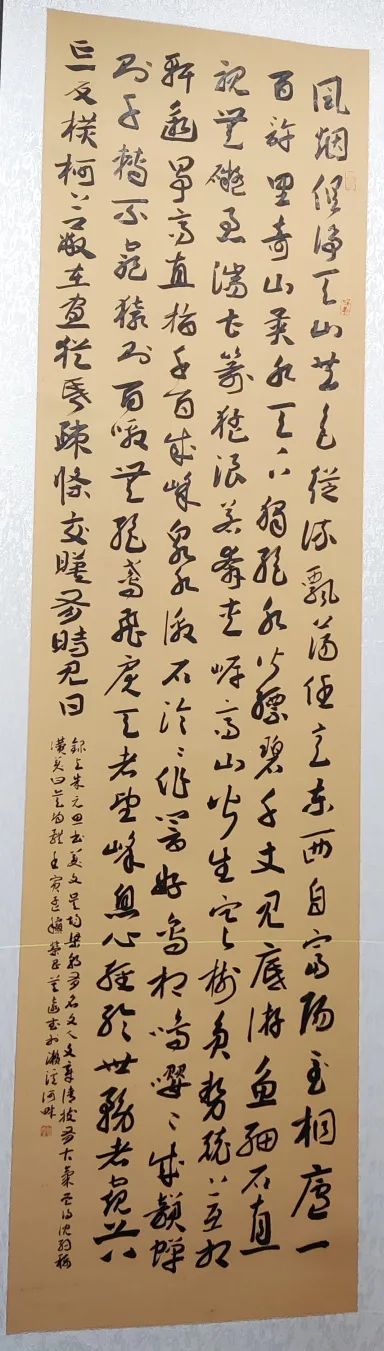 風烟俱净天山共色從流飄蕩任意東西自富陽至桐廬一
百許里奇山異水天下獨絕水皆縹碧千丈見底游魚細石直
視無礙急湍甚箭猛浪若奔夾岸高山皆生寒樹負勢競上互相
軒邈爭高直指千百成峰泉水激石泠〻作響好鳥相鳴嚶〻成韻蟬
則千轉不窮猿則百叫無絕鳶飛戾天者望峰息心經綸世務者窺谷
忘反橫柯上蔽在晝猶昏疎條交映有時見日
錄與朱元思書美文吳均梁朝有名文人文章清拔有古氣得沈約稱
讚美曰吳均體壬寅書於瀨溪河畔